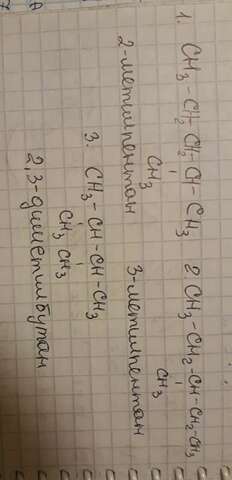 1. CH3-CH2-CH2-CH-CH3
CH3
2-метилпентан
2. CH3-CH2-CH-CH2-CH3
CH3
3-метилпентан
3. CH3-CH-CH-CH3
CH3 CH3
2,3-диметилбутан